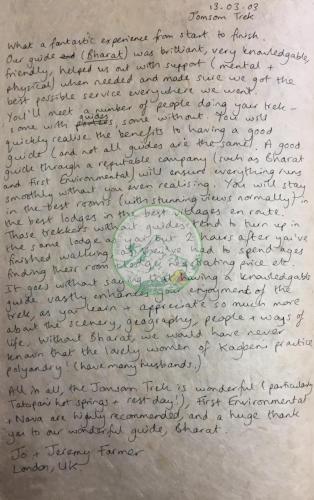 13-03-03
Jomsom Trek
What a fantastic experience from start to finish.
Our guide (Bharat) was brilliant, very knowledgable,
friendly, helped us out with support (mental +
physical) when needed and made sure we got the
best possible service everywhere we went.
You'll meet a number of people doing your trek -
some with guides, some without. You will
quickly realise the benefits to having a good
guide (and not all guides are the same). A good
guide through a reputable company (such as Bharat
and First Environmental) will ensure everything runs
smoothly without you even realising. You will stay
in the best rooms (with stunning views normally) in
the best lodges in the best villages en route.
Those trekkers without guides tend to turn up in
the same lodge as you but 2 hours after you've
finished walking, as they've had to spend ages
finding their room, lodge, negotiating price etc.
It goes without saying that having a knowledgable
guide vastly enhances your enjoyment of the
trek, as you learn + appreciate so much more
about the scenery, geography, people + ways of
life. Without Bharat, we would have never
known that the lovely women of Kagbeni practice
polyandry! (have many husbands.)
All in all, the Jomsom Trek is wonderful (particularly
Tatopani hot springs + rest day!), First Environmental
+ Nava are highly recommended, and a huge thank
you to our wonderful guide, Bharat.
Jo + Jeremy Farmer
London, UK